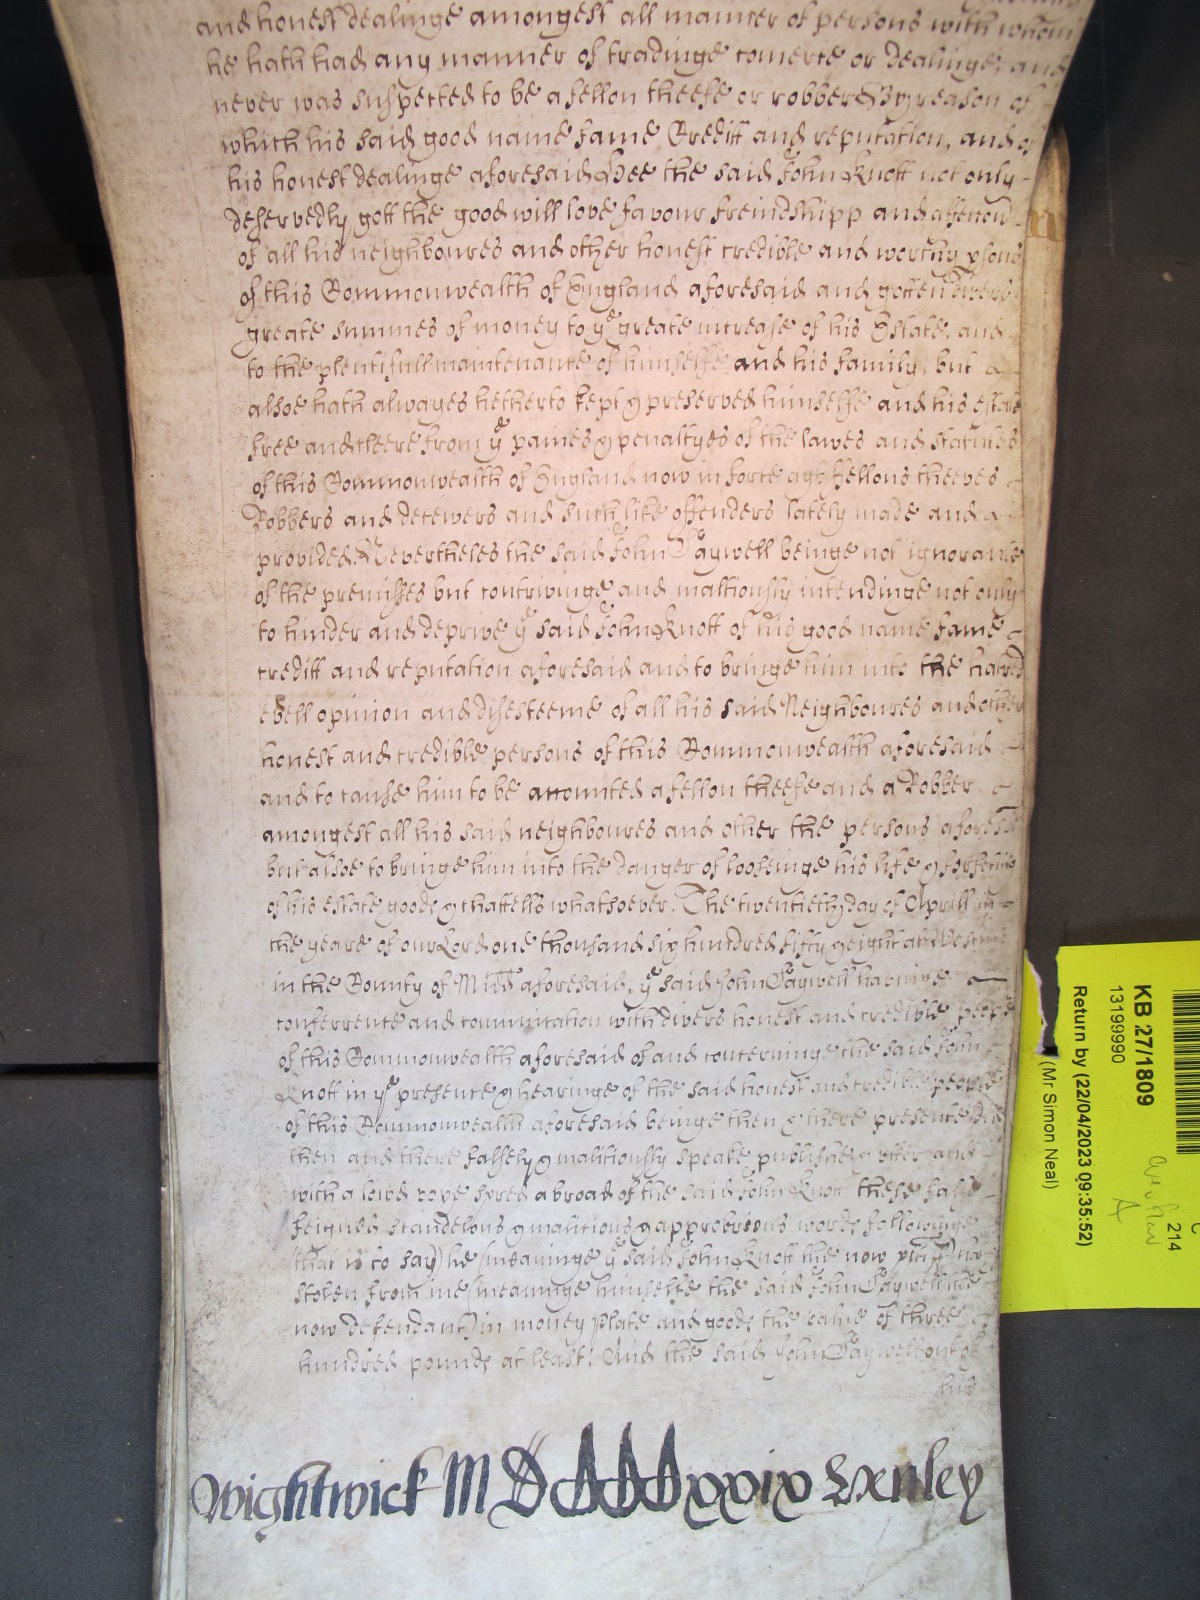 and honest dealinge amongest all manner of persons with whom
he hath had any manner of tradinge comerce or dealinge, and
never was suspected to be a fellon theefe or robber By reason of
which his said good name fame Creditt and reputation, and of
his honest dealinge aforesaid Hee the said John Knott not only
deservedly gott the good will love favour freindshipp and affeccon
of all his neighboures and other honest credible and worthy psons
of this Commonwealth of England aforesaid and gotten divers
greate summes of money to ye greate increase of his Estate, and
to the plentifull maintenance of himselfe and his family, but
alsoe hath alwayes hetherto kept & preserved himselfe and his estate
free and cleere from ye paines & penaltyes of the lawes and statutes
of this Commonwealth of England now in force agt ffellons theeves
Robbers and deceivers and such like offenders lately made and
provided. Nevertheles the said John Taywell beinge not ignorante
of the premisses but contrivinge and malitiously intendinge not only
to hinder and deprive ye said John Knott of his good name fame
creditt and reputation aforesaid and to bringe him into the hatred
evell opinion and disesteeme of all his said Neighboures and other
honest and credible persons of this Commonwealth aforesaid
and to cause him to be accounted a fellon theefe and a Robber
amongest all his said neighboures and other the persons aforesd
but alsoe to bringe him into the danger of looseinge his life & forfeting
of his estate goods & chattells whatsoever. The twentieth day of Aprill in
the yeare of our Lord one thousand six hundred fifty & eight at Westm
in the County of Midd aforesaid, ye said John Taywell havinge
conferrence and communication with divers honest and credible people
of this Commonwealth aforesaid of and concerninge the said John
Knott in ye presence & hearinge of the said honest and credible people
of this Commonwealth aforesaid beinge then & there presente did
then and there falsely & malitiously speake publishe utter and
with a lowd voyce spred abroad of the said John Knott these false
feigned scandelous & malitious & approbrious words followinge
(that is to say) he (meaninge ye said John Knott the now pltiff) hath
stolen from me (meaninge himselfe the said John Taywell the
now defendant) in money plate and goods the value of three
hundred pounds at least. And the said John Taywell out of
his
Wightwick M D CCC xxix Lxnley
KB 27/1809
13199990
Return by (22/04/2023 09:35:52)
(Mr Simon Neal)
214
A